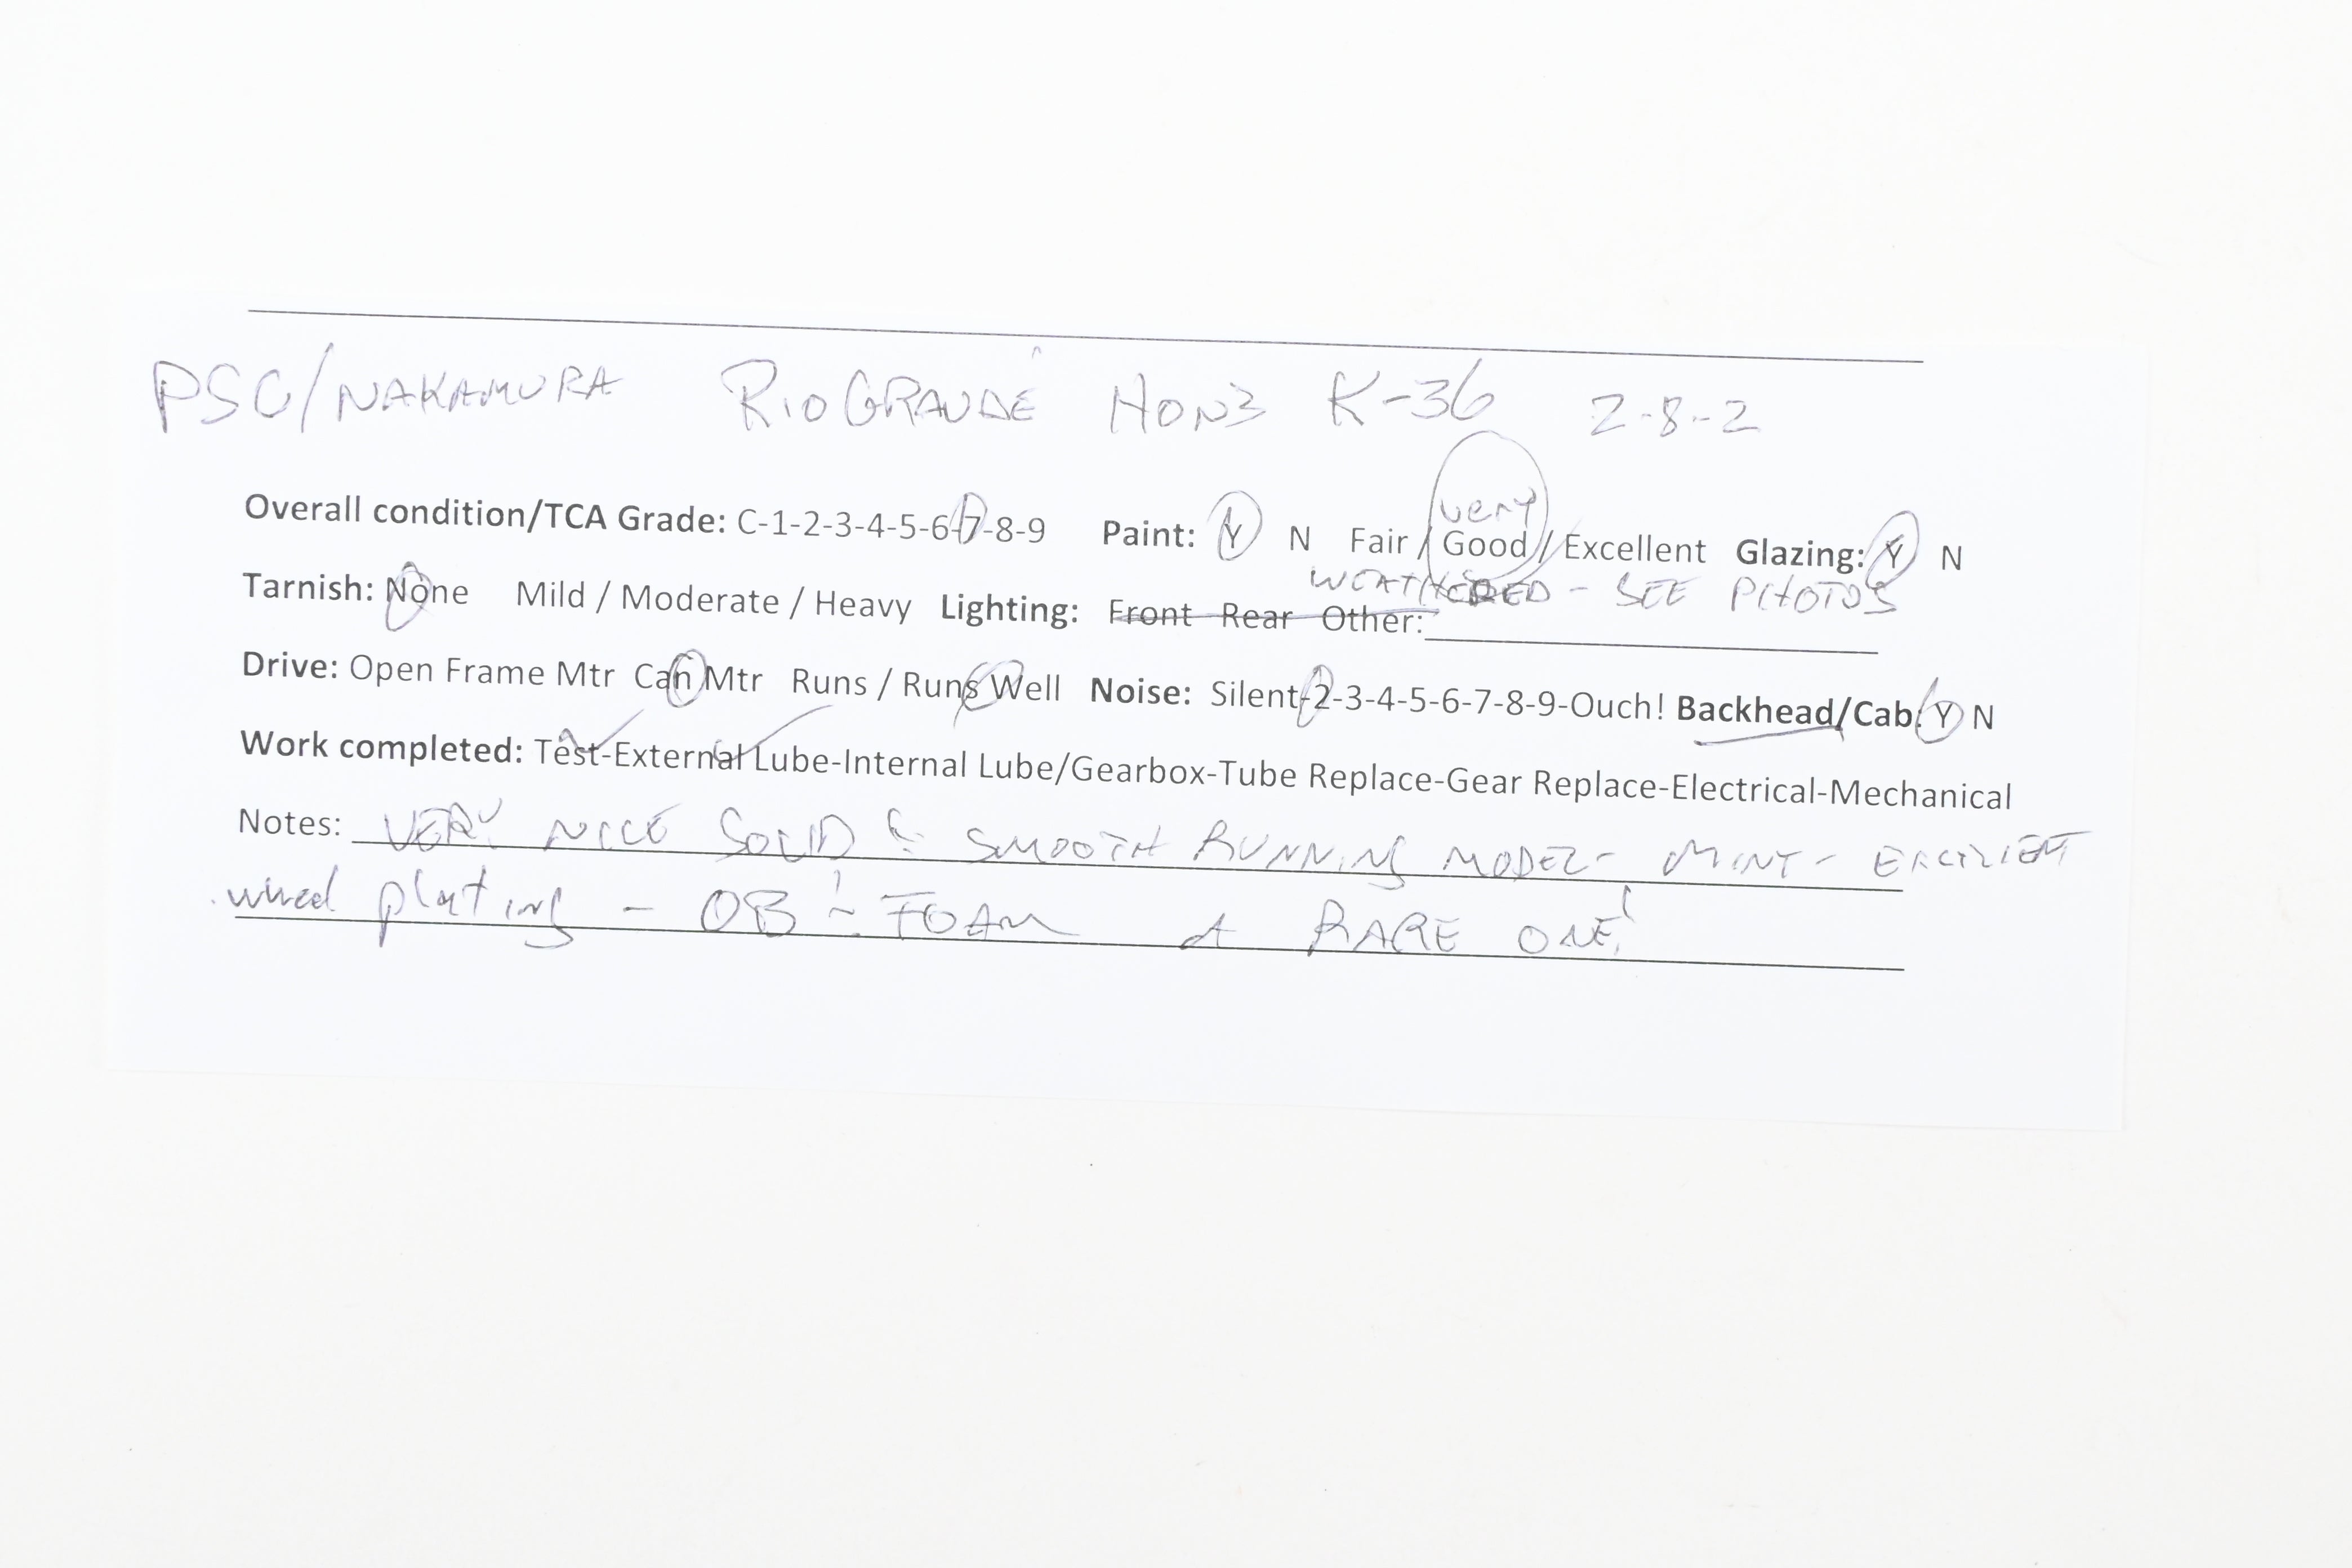 PSC/NAKAMURA RIO GRANDE HON3 K-36 2-8-2
very
Overall condition/TCA Grade: C-1-2-3-4-5-6-7-8-9 Paint: Y N Fair / Good / Excellent Glazing: Y N
WEATHERED - SEE PHOTOS
Tarnish: None Mild / Moderate / Heavy Lighting: Front Rear Other:
Drive: Open Frame Mtr Can Mtr Runs / Runs Well Noise: Silent-2-3-4-5-6-7-8-9-Ouch! Backhead/Cab: Y N
Work completed: Test-External Lube-Internal Lube/Gearbox-Tube Replace-Gear Replace-Electrical-Mechanical
Notes: VERY NICE SOLID & SMOOTH RUNNING MODEL - MINT - EXCELLENT
wheel plating - OB & FOAM A RARE ONE!